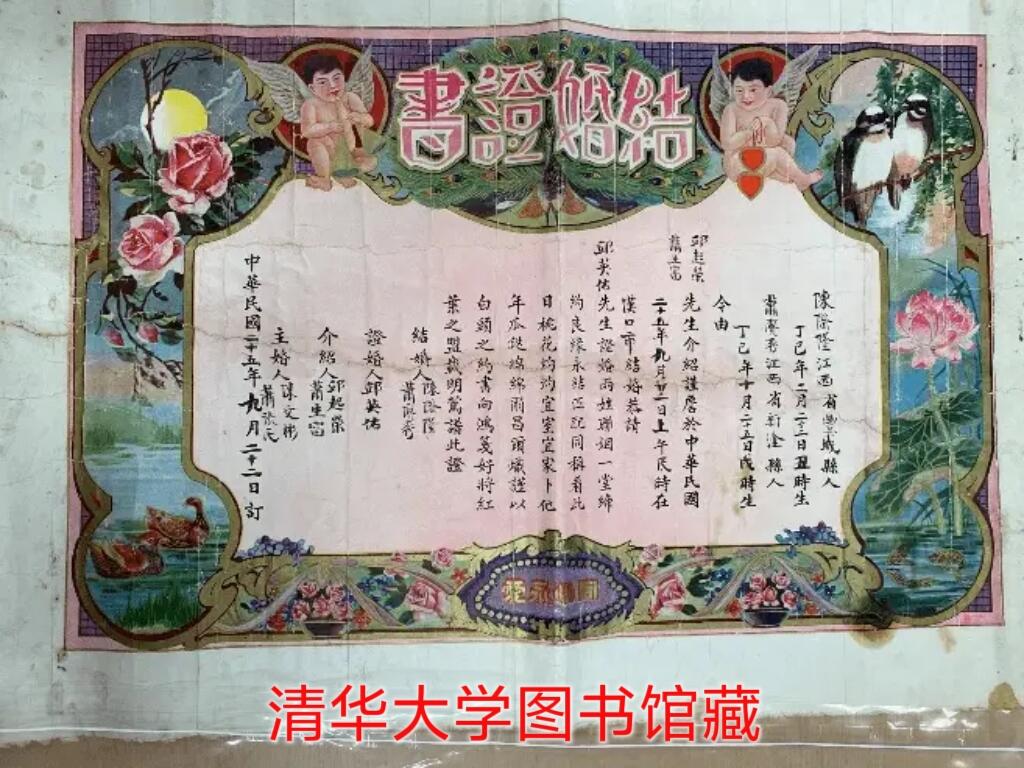 結婚證書
陳蔭隆江西省豐城縣人
丁巳年二月二十二日丑時生
蕭廖秀江西省新淦縣人
丁巳年十月二十五日戌時生
今由
邱起榮
蕭生富
先生介紹謹詹於中華民國
二十五年九月 日上午 時在
漢口市結婚恭請
邱英佑先生證婚兩姓聯姻一堂締
約良緣永結匹配同稱看此
日桃花灼灼宜室宜家卜他
年瓜瓞綿綿爾昌爾熾謹以
白頭之約書向鴻箋好將紅
葉之盟載明鴛譜此證
結婚人陳蔭隆
蕭廖秀
證婚人邱英佑
介紹人邱起榮
蕭生富
主婚人陳文彬
蕭 氏
中華民國二十五年九月二十二日訂
清华大学图书馆藏